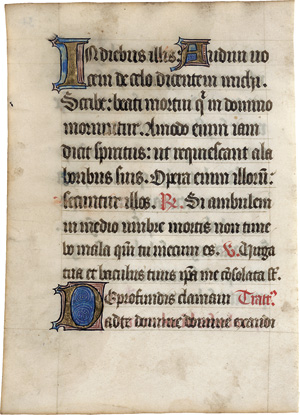 In diebus illis. Audivi vo
cem de celo dicentem michi.
Scribe: beati mortui q̄ in domino
moriuntur. Amodo enim iam
dicit spiritus: ut requiescant a la
boribus suis. Opera enim illoru̅:
secuntur illos. R̸. Si ambulem
in medio umbre mortis non time
bo mala qm̄ tu mecum es. V̸. Virga
tua et baculus tuus ip̄a me c̄solata s̄t.
De profundis clamavi Tract9.
ad te domine domine exaudi